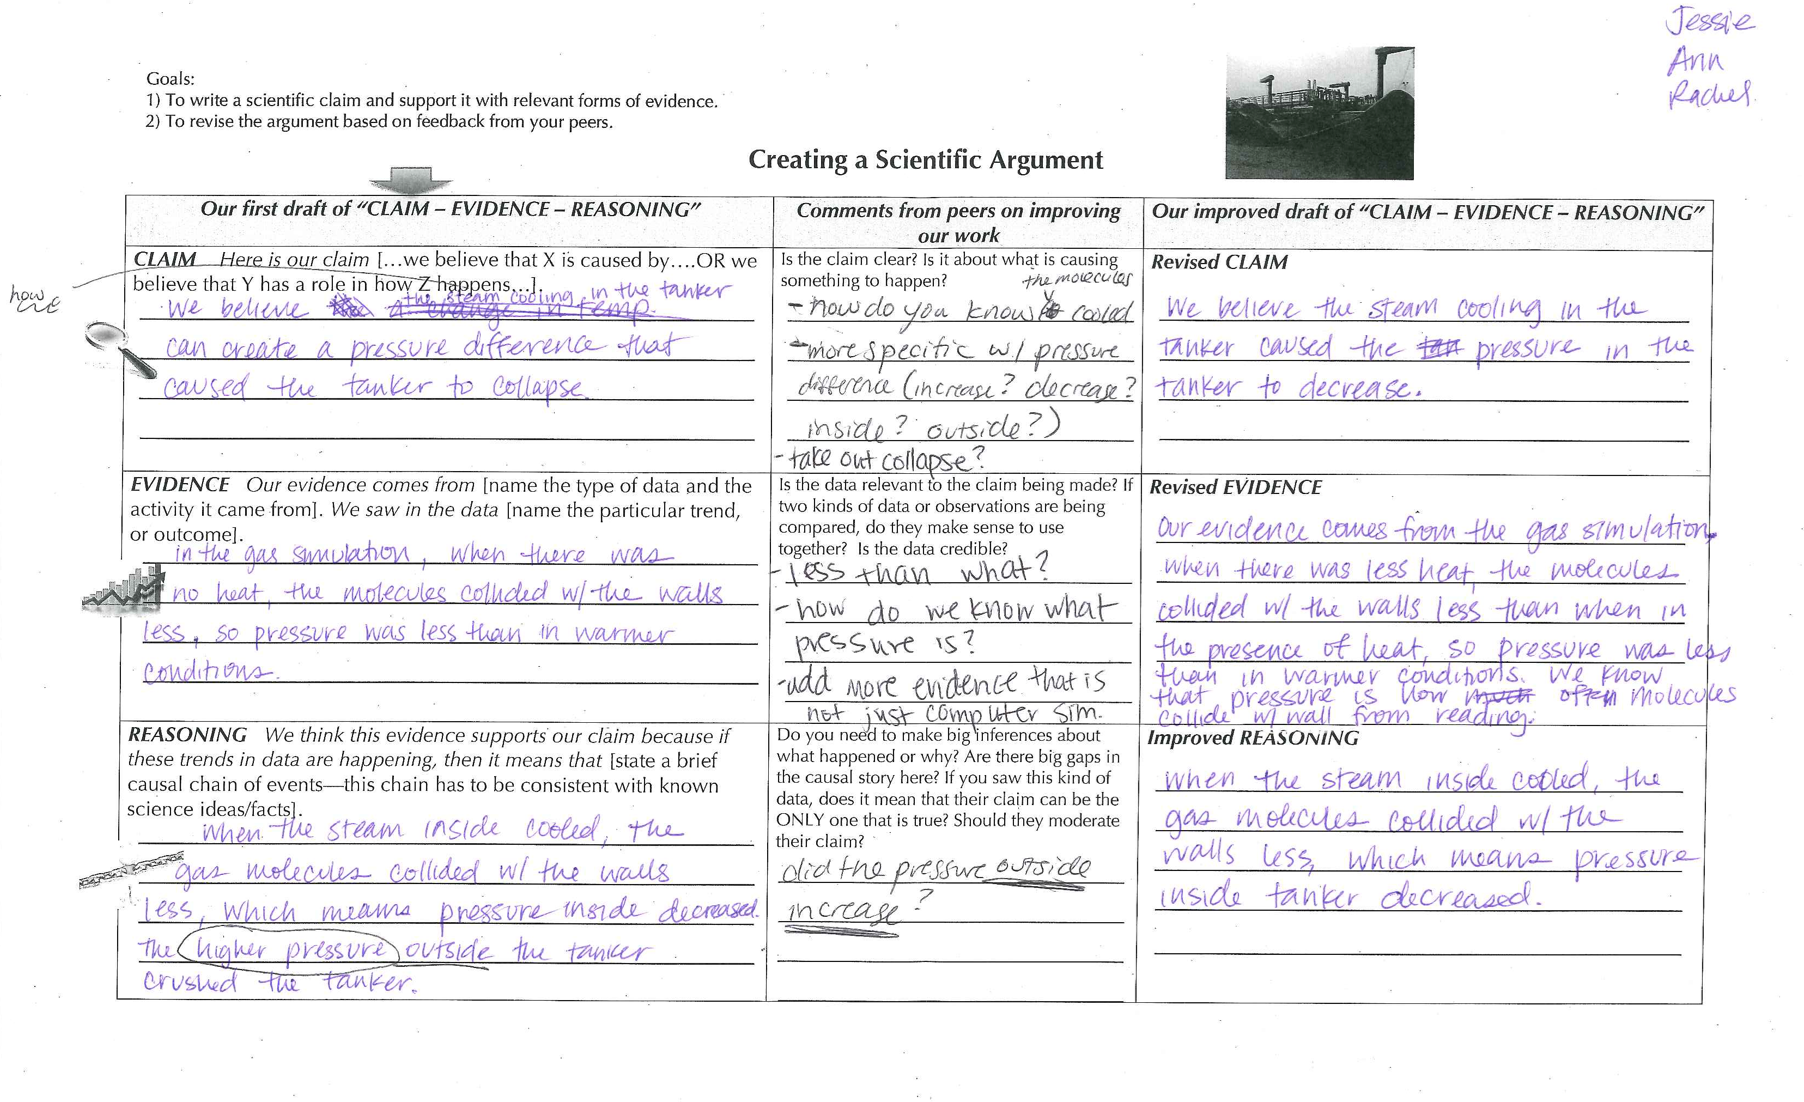 Jessie
Ann
Rachel
Goals:
1) To write a scientific claim and support it with relevant forms of evidence.
2) To revise the argument based on feedback from your peers.
Creating a Scientific Argument
Our first draft of “CLAIM – EVIDENCE – REASONING”
Comments from peers on improving
our work
Our improved draft of “CLAIM – EVIDENCE – REASONING”
CLAIM Here is our claim […we believe that X is caused by….OR we
believe that Y has a role in how Z happens…].
how
We believe a change in temp. the steam cooling in the tanker
can create a pressure difference that
caused the tanker to collapse.
Is the claim clear? Is it about what is causing
something to happen?
the molecules
- how do you know cooled
- more specific w/ pressure
difference (increase? decrease?
inside? outside?)
- take out collapse?
Revised CLAIM
We believe the steam cooling in the
tanker caused the tan pressure in the
tanker to decrease.
EVIDENCE Our evidence comes from [name the type of data and the
activity it came from]. We saw in the data [name the particular trend,
or outcome].
in the gas simulation, when there was
no heat, the molecules collided w/ the walls
less, so pressure was less than in warmer
conditions.
Is the data relevant to the claim being made? If
two kinds of data or observations are being
compared, do they make sense to use
together? Is the data credible?
- less than what?
- how do we know what
pressure is?
- add more evidence that is
not just computer sim.
Revised EVIDENCE
Our evidence comes from the gas simulation,
when there was less heat, the molecules
collided w/ the walls less than when in
the presence of heat, so pressure was less
than in warmer conditions. We know
that pressure is how much often molecules
collide w/ wall from reading.
REASONING We think this evidence supports our claim because if
these trends in data are happening, then it means that [state a brief
causal chain of events—this chain has to be consistent with known
science ideas/facts].
when the steam inside cooled, the
gas molecules collided w/ the walls
less, which means pressure inside decreased.
the higher pressure outside the tanker
crushed the tanker.
Do you need to make big inferences about
what happened or why? Are there big gaps in
the causal story here? If you saw this kind of
data, does it mean that their claim can be the
ONLY one that is true? Should they moderate
their claim?
did the pressure outside
increase?
Improved REASONING
when the steam inside cooled, the
gas molecules collided w/ the
walls less, which means pressure
inside tanker decreased.